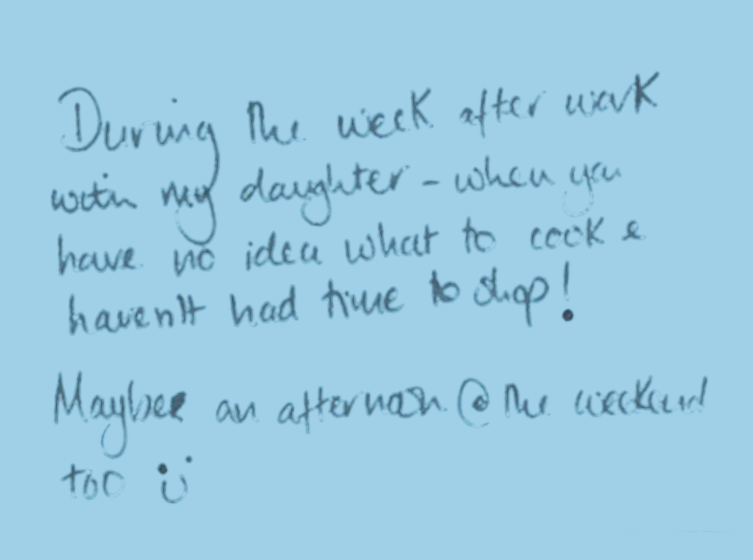 During the week after work
with my daughter - when you
have no idea what to cook &
haven't had time to shop!
Maybee an afternoon @ the weekend
too :)